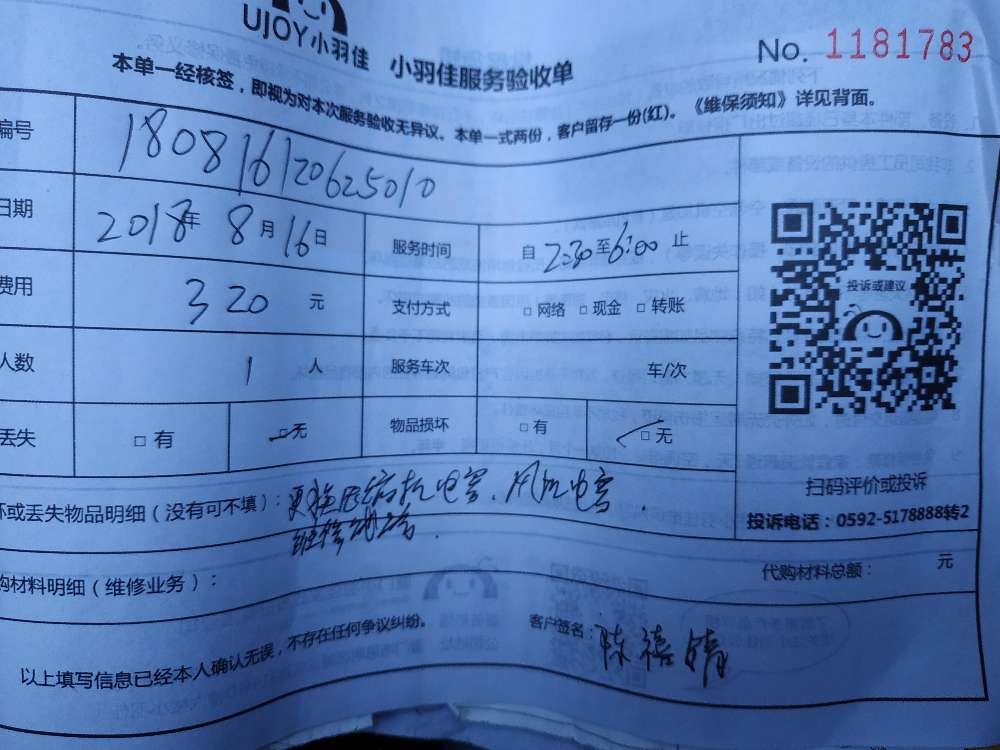 UJOY小羽佳 小羽佳服务验收单
No. 1181783
本单一经核签，即视为对本次服务验收无异议。本单一式两份，客户留存一份(红)。《维保须知》详见背面。
编号 180816120625010
日期 2018年 8月16日 服务时间 自2:30至6:00止
费用 320 元 支付方式 □网络 □现金 □转账
人数 1 人 服务车次 车/次
丢失 □有 □无 物品损坏 □有 □无
投诉或建议
扫码评价或投诉
投诉电话：0592-5178888转2
坏或丢失物品明细（没有可不填）：更换压缩机电容、风机电容.
维修
购材料明细（维修业务）： 代购材料总额： 元
以上填写信息已经本人确认无误，不存在任何争议纠纷。 客户签名：陈禧婧